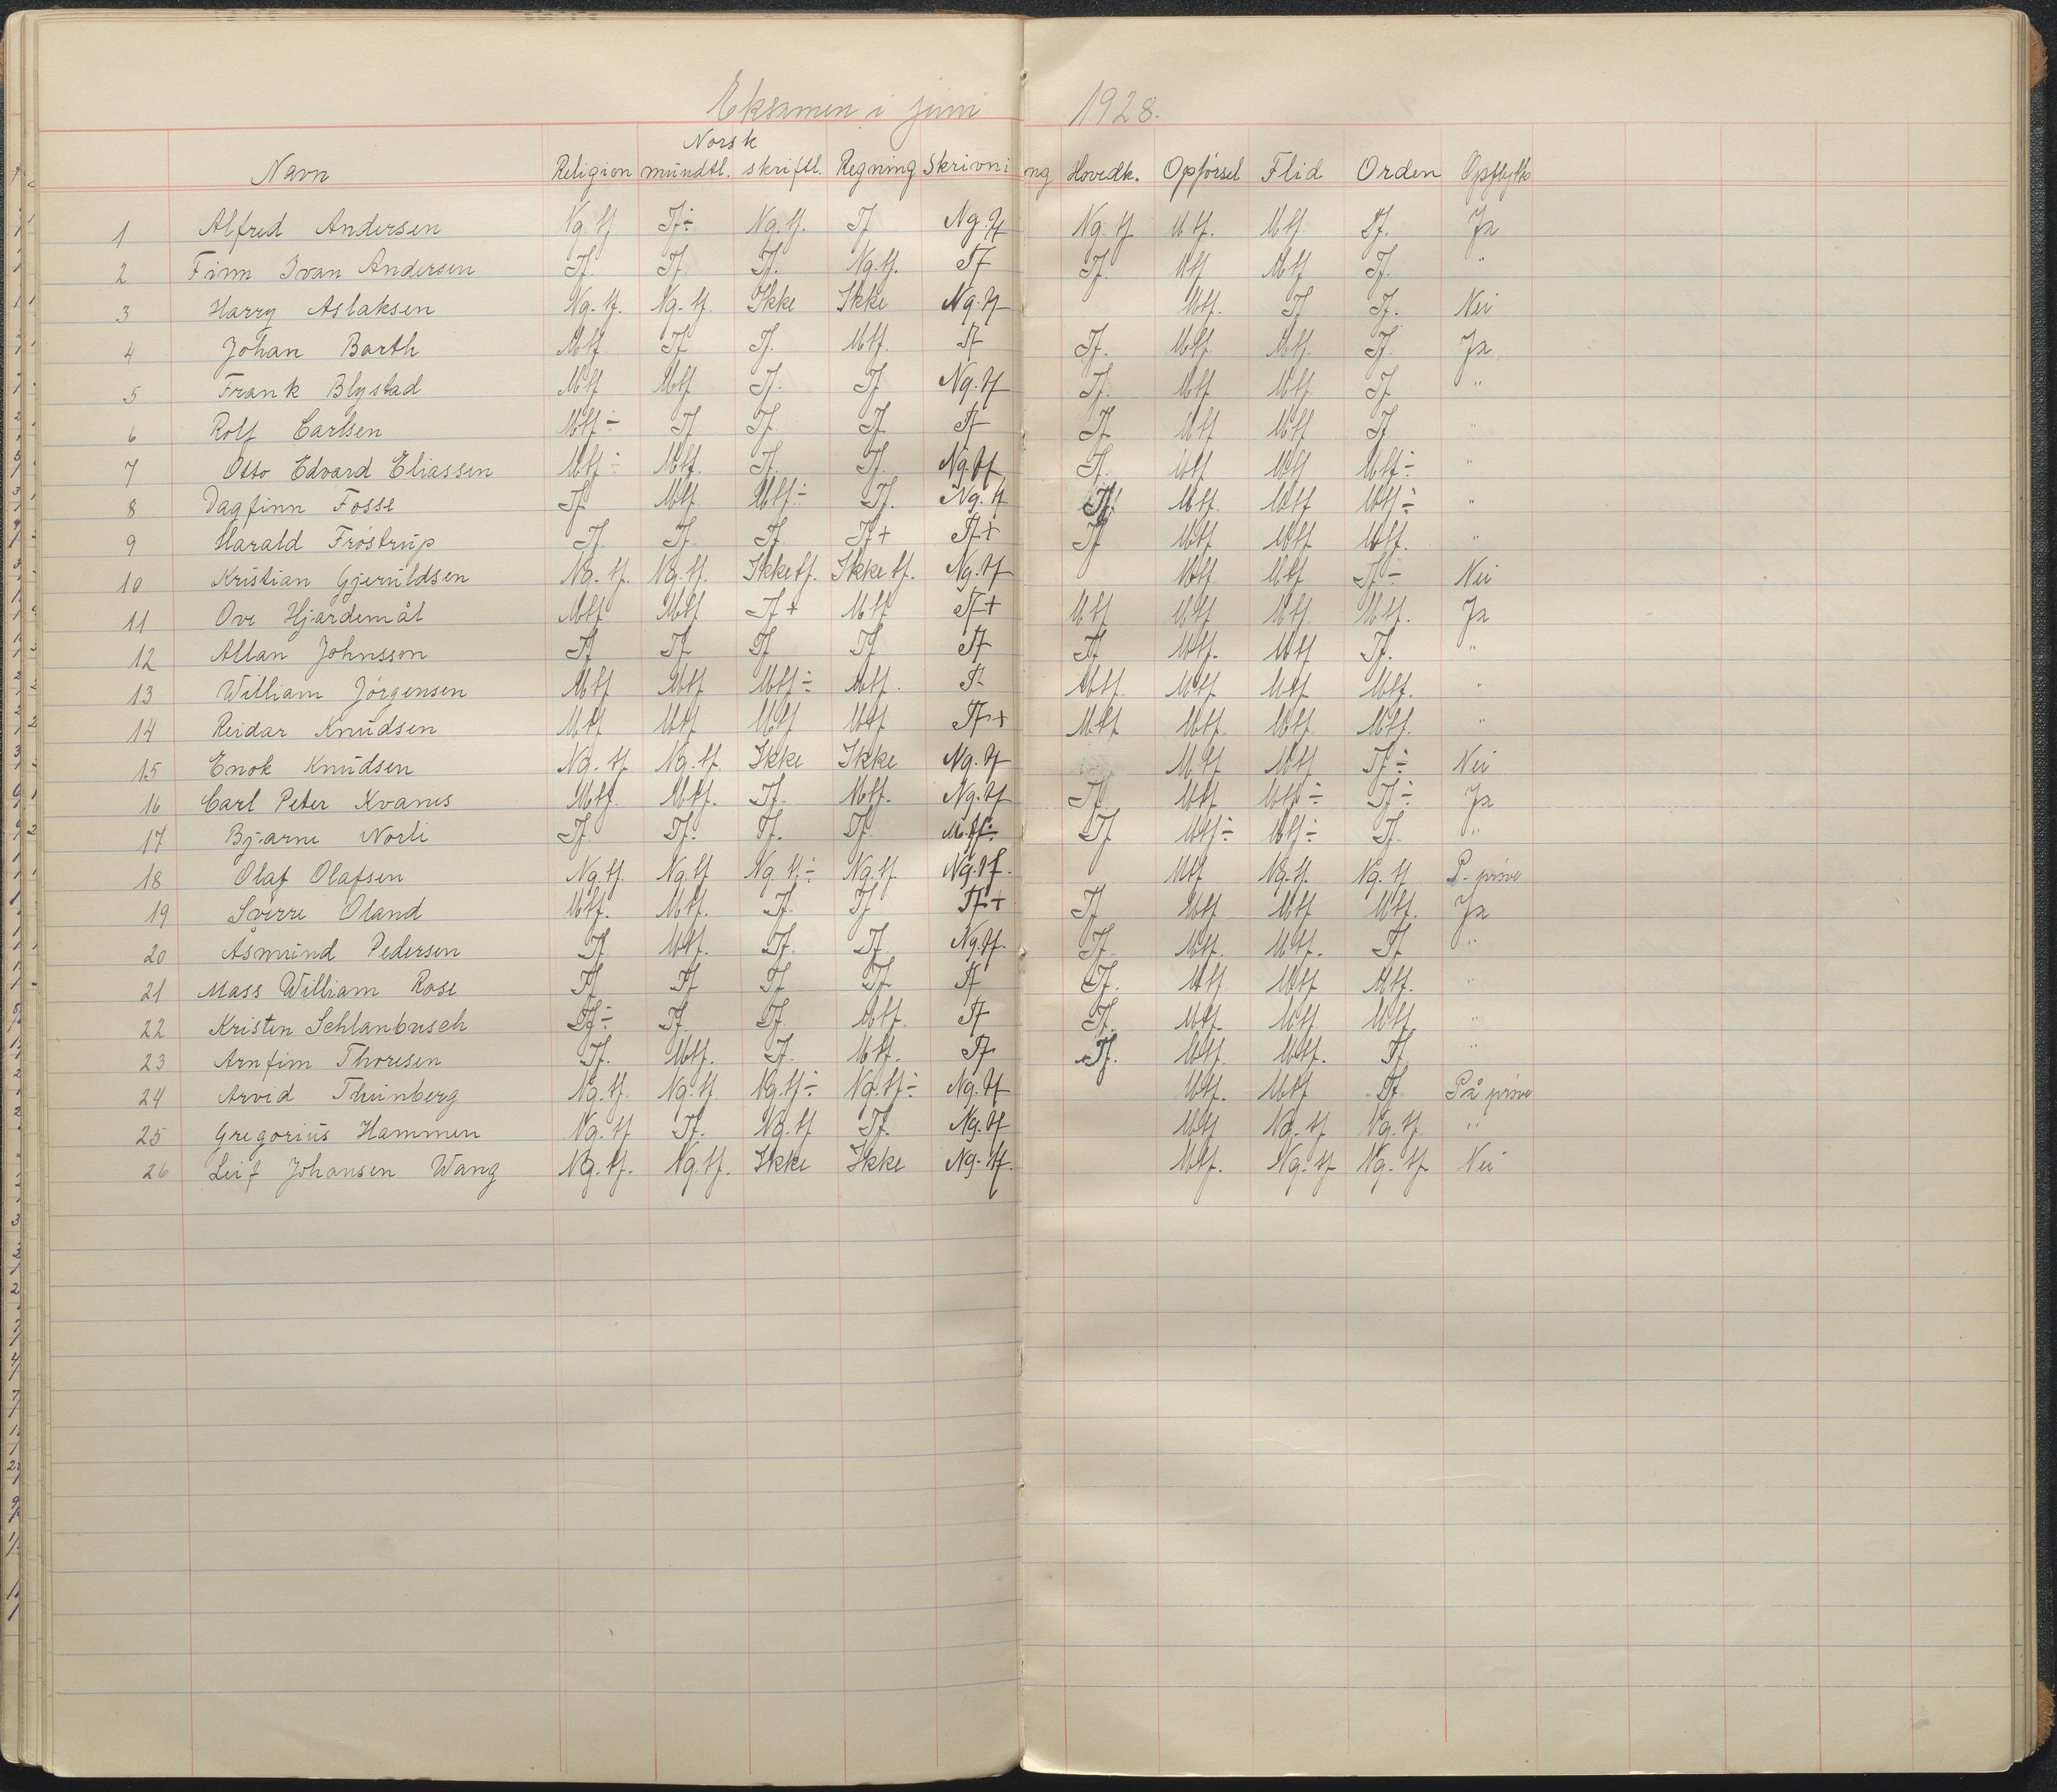 Eksamen i juni 1928.
Norsk
Navn Religion mundtl. skriftl. Regning Skrivning Hovedk. Opførsel Flid Orden Opflytta
1 Alfred Andersen Ng. tf. Tf÷ Ng. tf. Tf Ng. tf Ng. tf Mtf. Mtf. Tf. Ja
2 Finn Ivan Andersen Tf. Tf Tf. Ng. tf. Tf Tf. Mtf Mtf Tf. "
3 Harry Aslaksen Ng. tf. Ng. tf. Ikke Ikke Ng. tf Mtf. Tf Tf. Nei
4 Johan Barth Mtf Tf Tf. Mtf. Tf Tf. Mtf Mtf. Tf Ja
5 Frank Blystad Mtf Mtf Tf. Tf Ng. tf Tf. Mtf Mtf Tf "
6 Rolf Carlsen Mtf÷ Tf Tf Tf Tf Tf Mtf Mtf Tf "
7 Otto Edvard Eliassen Mtf÷ Mtf. Tf. Tf. Ng. tf Tf. Mtf Mtf Mtf÷ "
8 Dagfinn Fosse Tf. Mtf Mtf÷ Tf. Ng. tf Tf. Mtf. Mtf Mtf÷ "
9 Harald Frøstrup Tf Tf. Tf Tf+ Tf+ Tf Mtf Mtf Mtf. "
10 Kristian Gjeruldsen Ng. tf. Ng. tf. Ikke tf. Ikke tf. Ng. tf Mtf Mtf Tf÷ Nei
11 Ove Hjardemål Mtf Mtf Tf+ Mtf Tf+ Mtf Mtf Mtf. Mtf. Ja
12 Allan Johnsson Tf Tf Tf Tf Tf Tf Mtf. Mtf Tf. "
13 William Jørgensen Mtf Mtf Mtf÷ Mtf. Tf Mtf. Mtf Mtf Mtf. "
14 Reidar Knudsen Mtf Mtf Mtf Mtf Tf+ Mtf Mtf. Mtf. Mtf. "
15 Enok Knudsen Ng. tf. Ng. tf. Ikke Ikke Ng. tf Mtf Mtf Tf÷ Nei
16 Carl Peter Kvanes Mtf. Mtf. Tf. Mtf. Ng. tf Tf Mtf Mtf÷ Tf÷ Ja
17 Bjarne Norli Tf Tf. Tf. Tf Mtf÷ Tf Mtf÷ Mtf÷ Tf "
18 Olaf Olafsen Ng. tf Ng. tf Ng. tf÷ Ng. tf. Ng. tf. Mtf Ng. tf. Ng. tf P- prøve
19 Sverre Oland Mtf. Mtf. Tf. Tf Tf+ Tf Mtf Mtf Mtf. Ja
20 Asmund Pedersen Tf Mtf. Tf. Tf Ng. tf. Tf. Mtf. Mtf. Tf "
21 Mass William Rose Tf Tf Tf Tf Tf Tf. Mtf Mtf Mtf. "
22 Kristen Schlanbusch Tf÷ Tf Tf Mtf. Tf Tf. Mtf. Mtf Mtf. "
23 Arnfinn Thoresen Tf. Mtf. Tf. Mtf. Tf Tf. Mtf. Mtf. Tf "
24 Arvid Thunberg Ng. tf. Ng. tf. Ng. tf÷ Ng. tf÷ Ng. tf Mtf. Mtf Tf På prøve
25 Gregorius Hammen Ng. tf Tf. Ng. tf Tf. Ng. tf Mtf Ng. tf Ng. tf. "
26 Leif Johansen Wang Ng. tf. Ng. tf. Ikke Ikke Ng. tf. Mtf. Ng. tf Ng. tf Nei